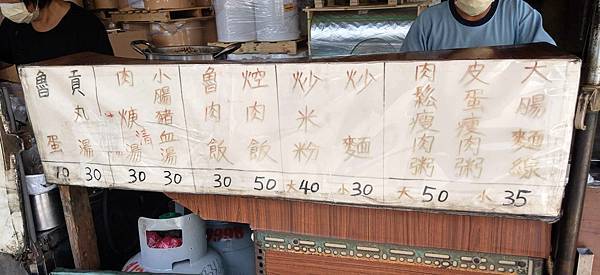 大腸麵線
皮蛋瘦肉粥
肉鬆瘦肉粥
炒麵
炒米粉
焢肉飯
魯肉飯
小腸豬血湯
清
肉焿湯
貢丸湯
魯蛋
10 30 30 30 30 50 大40 小30 大50 小35